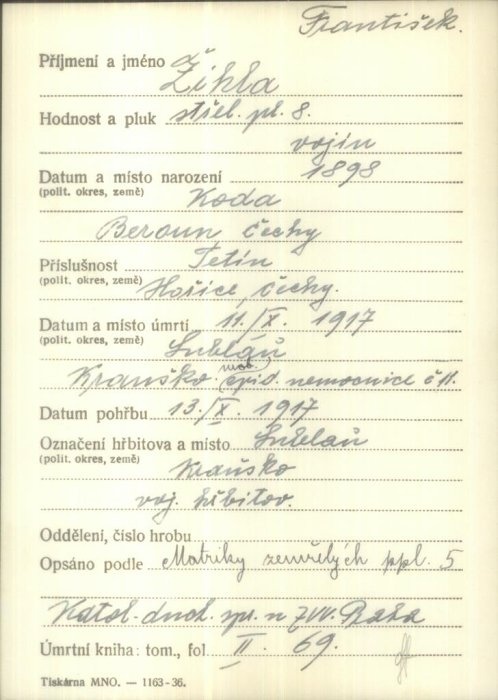 František.
Příjmení a jméno
Žihla
Hodnost a pluk střel. pl. 8.
vojín
Datum a místo narození 1898
(polit. okres, země) Koda
Beroun Čechy
Příslušnost Tetín
(polit. okres, země) Hořice, Čechy.
Datum a místo úmrtí 11./X. 1917
(polit. okres, země) Lublaň
mob.
Kraňsko. epid. nemocnice č 11.
Datum pohřbu 13./X. 1917
Označení hřbitova a místo Lublaň
(polit. okres, země) Kraňsko
voj. hřbitov.
Oddělení, číslo hrobu
Opsáno podle Matriky zemřelých ppl. 5
Katol. duch. spr. n ZVV. Praha
Úmrtní kniha: tom., fol II. 69.
Tiskárna MNO. — 1163-36.